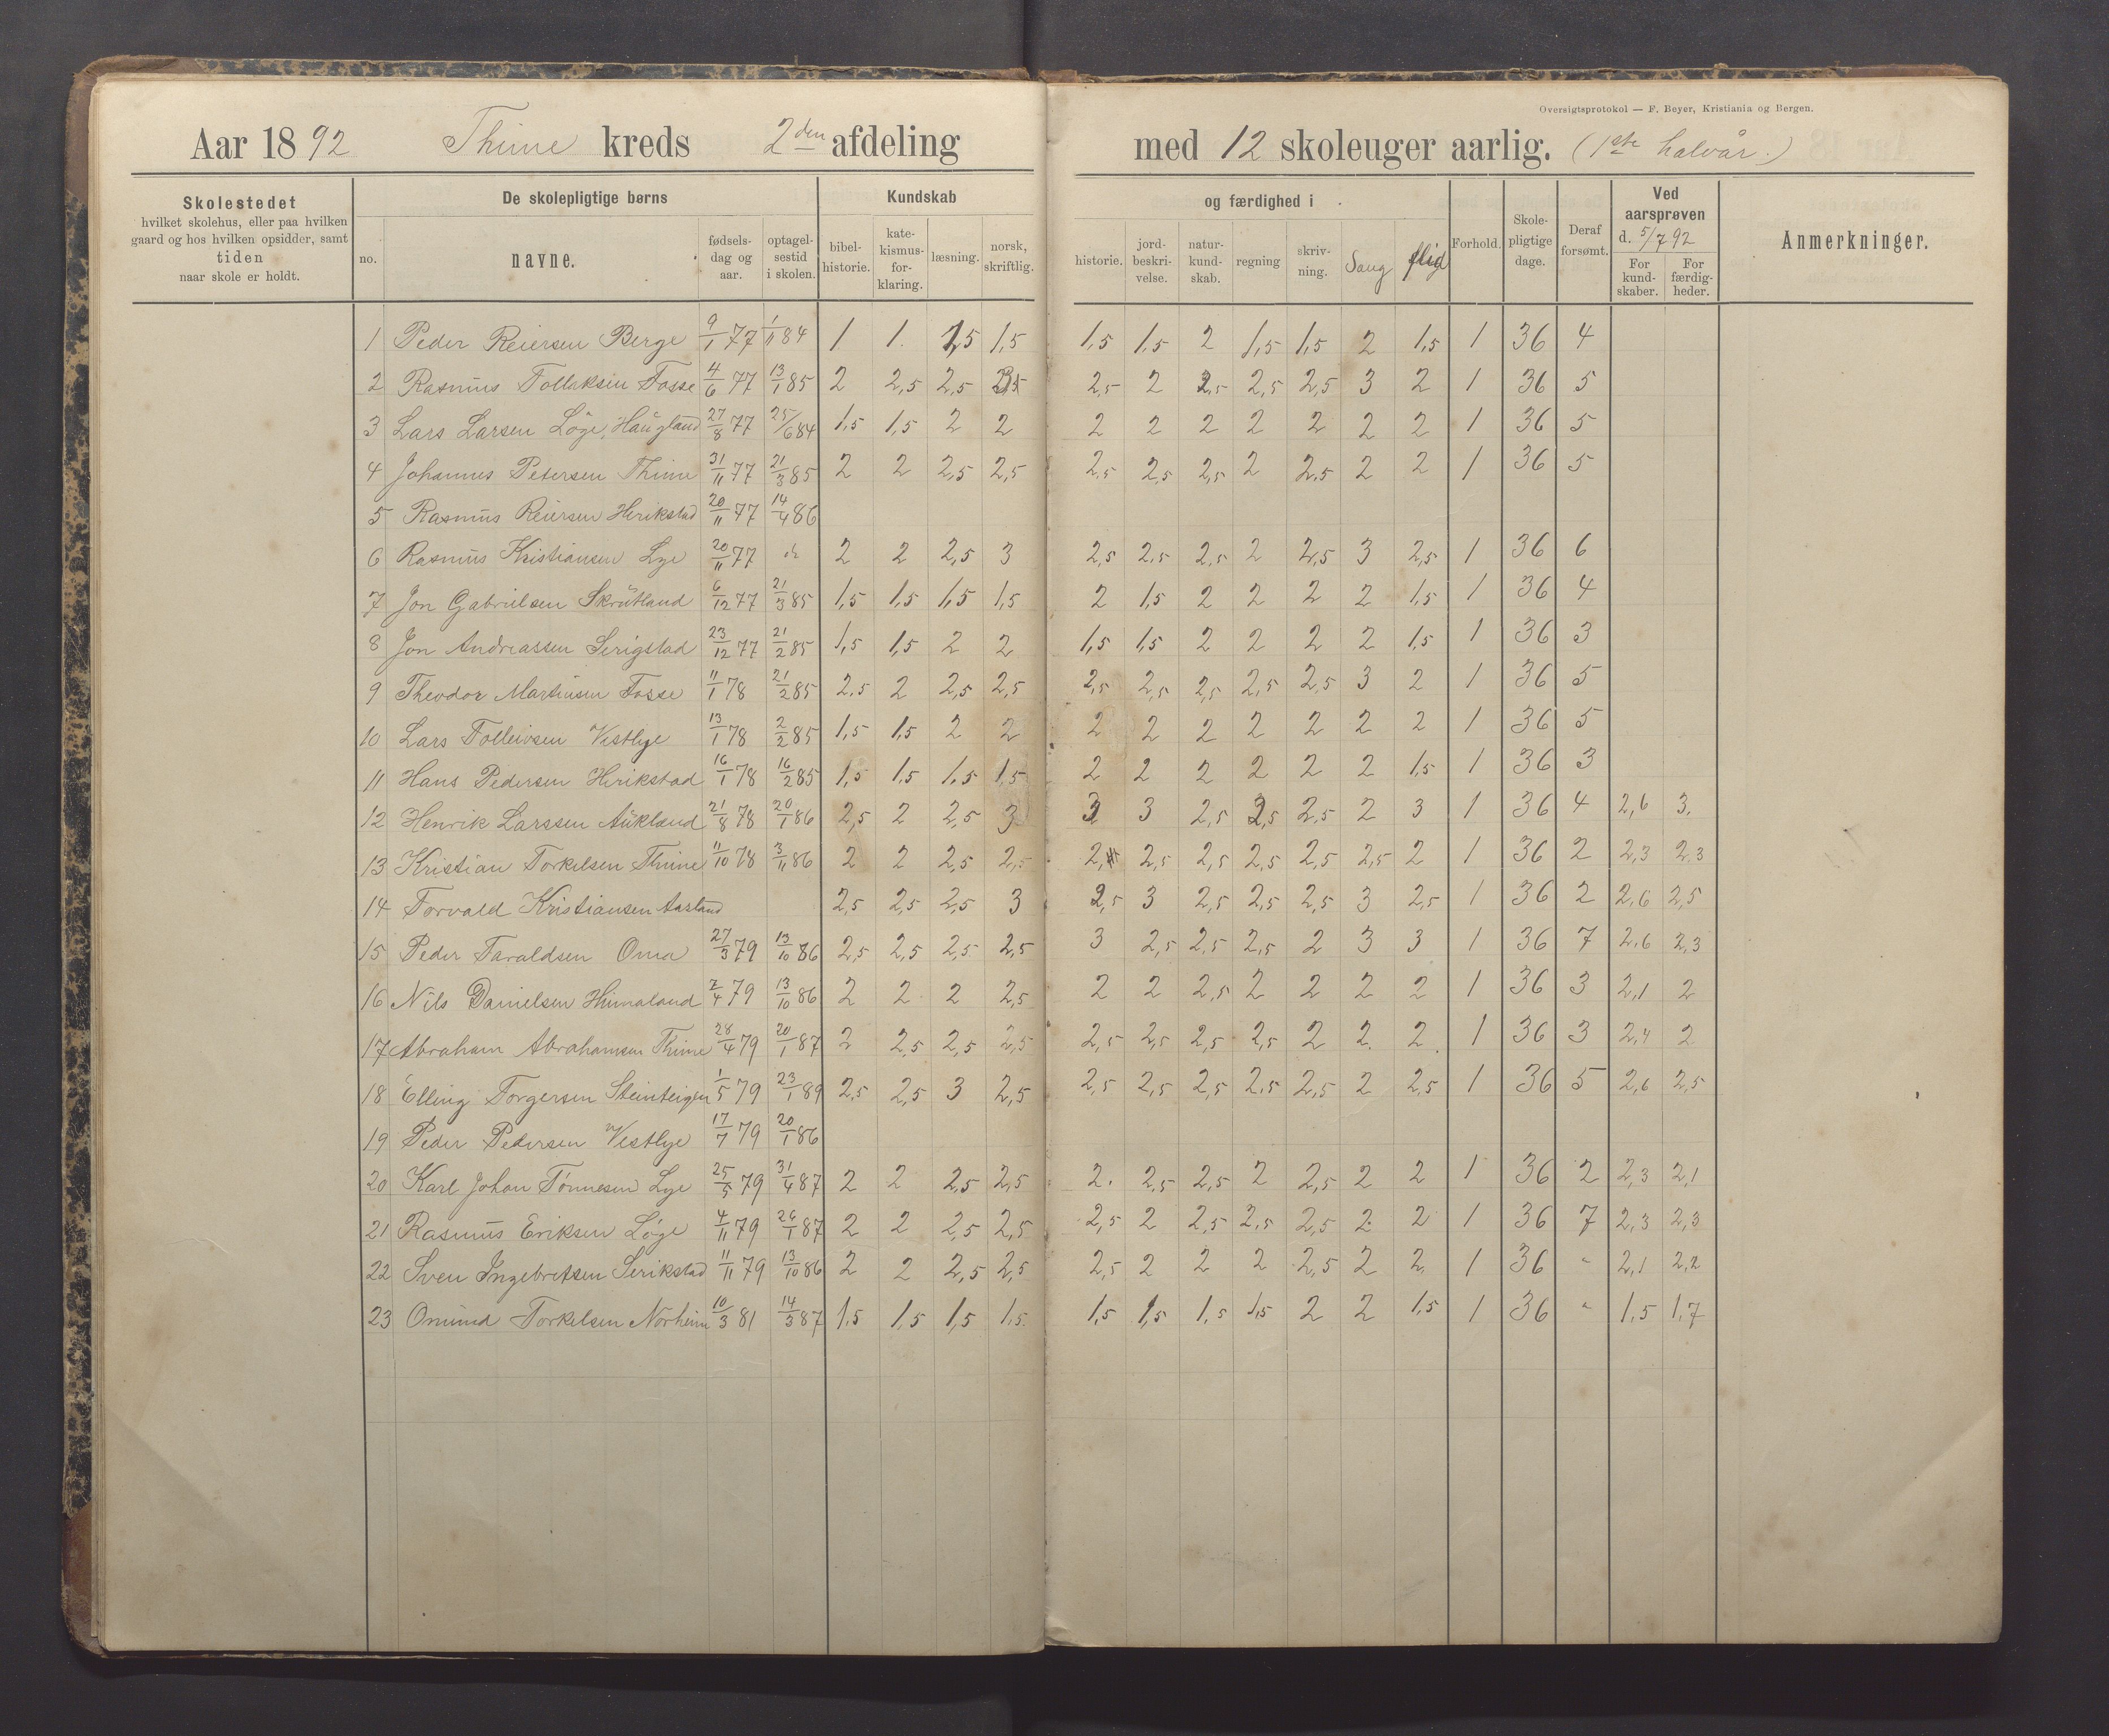 Oversigtsprotokol — F. Beyer, Kristiania og Bergen.
Aar 1892 Thime kreds 2den afdeling med 12 skoleuger aarlig. (1ste halvår.)
Skolestedet
hvilket skolehus, eller paa hvilken
gaard og hos hvilken opsidder, samt
tiden
naar skole er holdt.
De skolepligtige børns
no. navne. fødsels-dag og aar. optagel-sestid i skolen.
Kundskab og færdighed i
bibel-historie. kate-kismus-for-klaring. læsning. norsk, skriftlig. historie. jord-beskri-velse. natur-kund-skab. regning skriv-ning. Sang flid
Forhold. Skole-pligtige dage. Deraf forsømt. Ved aarsprøven d. 5/7 92 For kund-skaber. For færdig-heder. Anmerkninger.
1 Peder Reiersen Berge 9/1 77 1/11 84 1 1. 1,5 1,5 1,5 1,5 2 1,5 1,5 2 1,5 1 36 4
2 Rasmus Tollaksen Fosse 4/6 77 13/1 85 2 2,5 2,5 2,5 2 2,5 2,5 2,5 3 2 1 36 5
3 Lars Larsen Løge, Haugland 27/8 77 25/6 84 1,5 1,5 2 2 2 2 2 2 2 2 2 1 36 5
4 Johannes Petersen Thime 31/11 77 21/3 85 2 2 2,5 2,5 2,5 2,5 2,5 2 2,5 2 2 1 36 5
5 Rasmus Reiersen Herikstad 20/11 77 14/4 86
6 Rasmus Kristiansen Lye 20/11 77 2 2 2,5 3 2,5 2,5 2,5 2 2,5 3 2,5 1 36 6
7 Jon Gabrielsen Skrutland 6/12 77 21/3 85 1,5 1,5 1,5 1,5 2 1,5 2 2 2 2 1,5 1 36 4
8 Jon Andreassen Serigstad 23/12 77 21/2 85 1,5 1,5 2 2 1,5 1,5 2 2 2 2 1,5 1 36 3
9 Theodor Martinsen Fosse 11/1 78 21/2 85 2,5 2 2,5 2,5 2,5 2,5 2,5 2,5 2,5 3 2 1 36 5
10 Lars Tolleivsen Vestlye 13/1 78 2/2 85 1,5 1,5 2 2 2 2 2 2 2 2 2 1 36 5
11 Hans Pedersen Herikstad 16/1 78 16/2 85 1,5 1,5 1,5 1,5 2 2 2 2 2 2 1,5 1 36 3
12 Henrik Larssen Aukland 21/8 78 20/1 86 2,5 2 2,5 3 3 3 2,5 2,5 2,5 2 3 1 36 4 2,6 3.
13 Kristian Torkelsen Thime 11/10 78 3/11 86 2 2 2,5 2,5 2, 2,5 2,5 2,5 2,5 2,5 2 1 36 2 2,3 2,3
14 Torvald Kristiansen Aasland 2,5 2,5 2,5 3 2,5 3 2,5 2,5 2,5 3 2,5 1 36 2 2,6 2,5
15 Peder Taraldsen Oma 27/3 79 13/10 86 2,5 2,5 2,5 2,5 3 2,5 2,5 2,5 2 3 3 1 36 7 2,6 2,3
16 Nils Danielsen Humaland 2/4 79 13/10 86 2 2 2 2,5 2 2 2,5 2 2 2 2 1 36 3 2,1 2
17 Abraham Abrahamsen Thime 28/4 79 20/1 87 2 2,5 2,5 2,5 2,5 2,5 2,5 2,5 2 2. 2. 1 36 3 2,4 2
18 Elling Torgersen Steinteigen 1/5 79 23/1 89 2,5 2,5 3 2,5 2,5 2,5 2,5 2,5 2,5 2 2,5 1 36 5 2,6 2,5
19 Peder Pedersen Vestlye 17/7 79 20/1 86
20 Karl Johan Tønnesen Lye 25/5 79 31/4 87 2 2 2,5 2,5 2. 2,5 2,5 2 2,5 2 2 1 36 2 2,3 2,1
21 Rasmus Eriksen Løge 4/11 79 26/1 87 2 2 2,5 2,5 2,5 2 2,5 2,5 2,5 2. 2 1 36 7 2,3 2,3
22 Sven Ingebretsen Serikstad 11/11 79 13/10 86 2 2 2,5 2,5 2,5 2 2 2 2,5 2 2. 1 36 " 2,1 2,2
23 Omund Torkelsen Norheim 10/3 81 14/3 87 1,5 1,5 1,5 1,5. 1,5 1,5 1,5 1,5 2 2 1,5 1 36 " 1,5 1,7